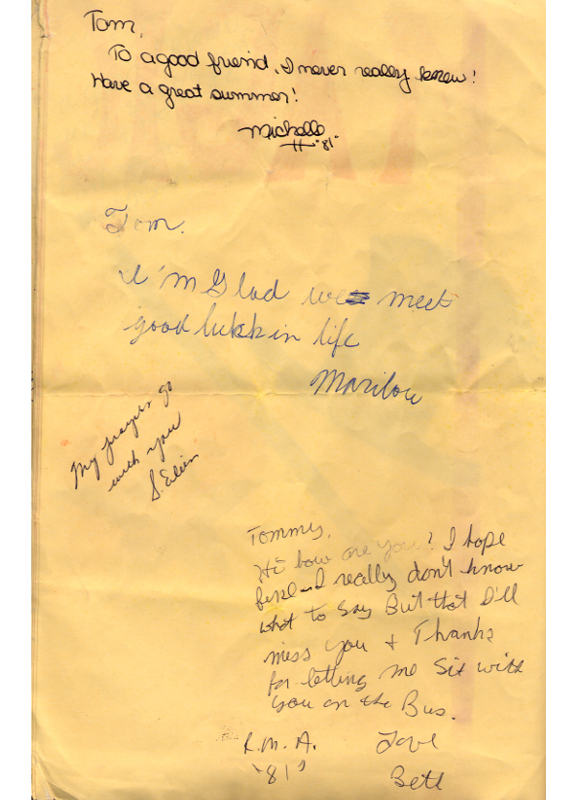 Tom,
To a good friend, I never really knew!
Have a great summer!
Michelle
"81"
Tom.
I'm Glad we meet
good lukk in life
Marilou
My prayers go
with you
S. Eileen
Tommy,
Hi how are you? I hope
fine - I really don't know
what to say But that I'll
miss you + Thanks
for letting me Sit with
you on the Bus.
R.M.A. Love
'81' Beth